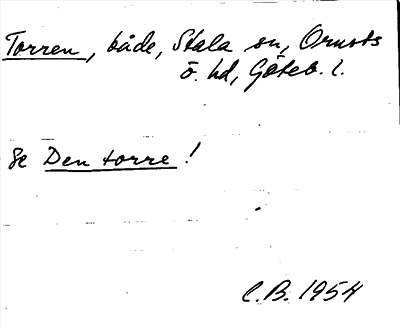 Torren, både, Stala sn, Orusts
ö. hd, Göteb. l.
Se Den torre!
C.B. 1954